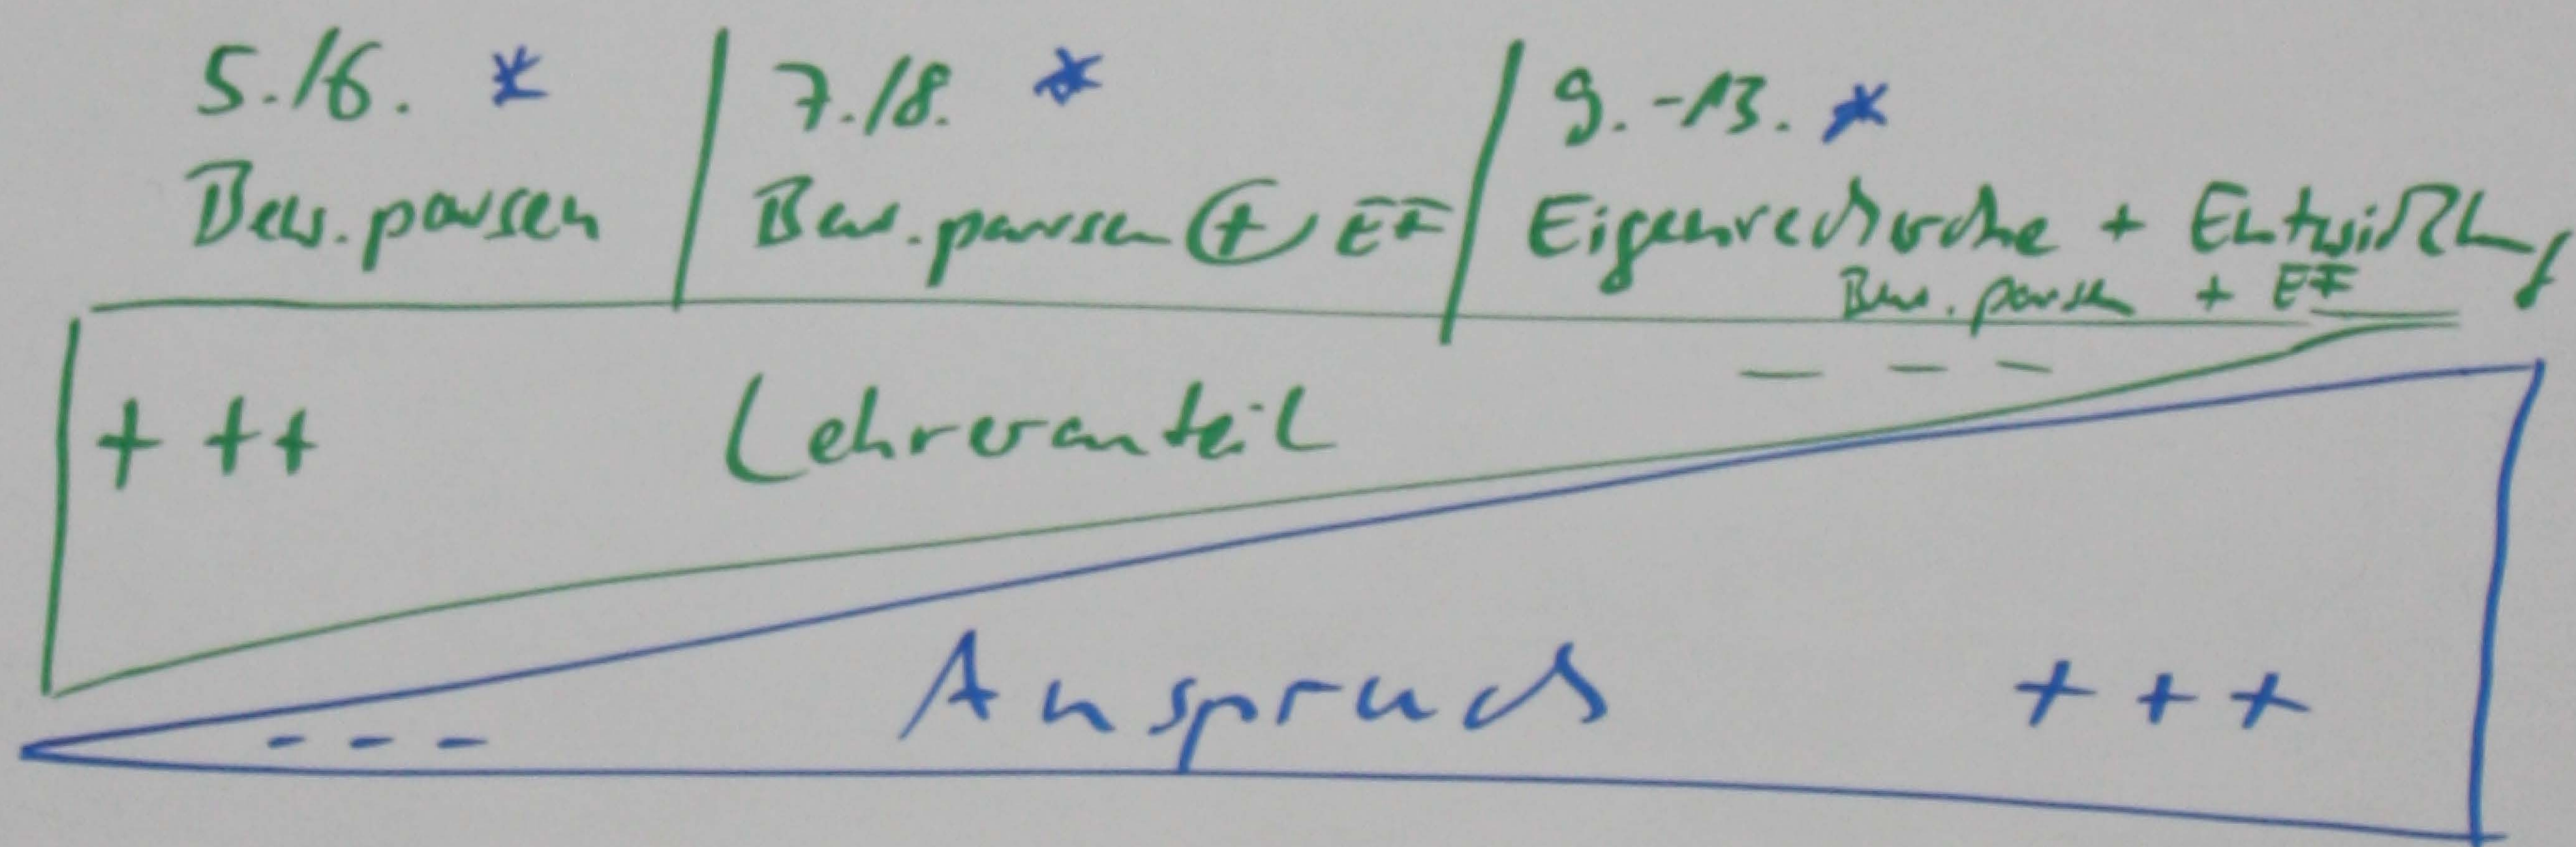 5./6. * 7./8. * 9.-13. *
Bew.pausen Bew.pausen + EF Eigenrecherche + Entwicklung
Bew.pausen + EF
- - -
+ ++ Lehreranteil
Anspruch + + +
- - -